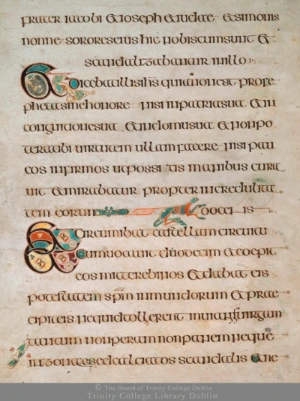 frater iacobi & ioseph & iudae & simonis
nonne & sorores eius hic nobiscum sunt &
scandalizabantur in illo
& dicebat illis ihs quia non est profe
pheta sine honore nisi in patria sua & in
cognatione sua & in domu sua & non po
terat ibi uirtutem ullam facere nisi pau
cos infirmos inpossitis manibus cura
uit & mirabatur propter incredulita
tem eorum docens
& circumibat castella in circuitu
& conuocauit duodecim & coepit
eos mittere binos & dabat eis
potestatem spirituum inmundorum & prae
cipit eis nequid tollerent in uia nisi uirgam
tantum non peram non panem neque
in zona aes sed calciatos scandalis & ne
© The Board of Trinity College Dublin
Trinity College Library Dublin